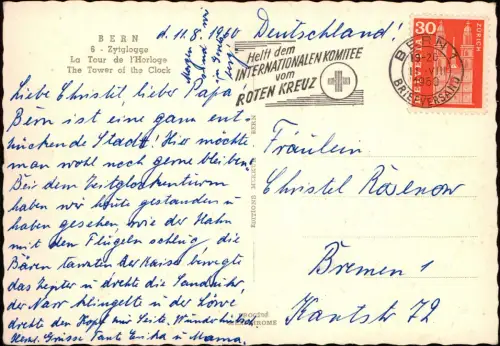 BERN
6 - Zytglogge
La Tour de l'Horloge
The Tower of the Clock
d. 11.8.1960
Morgen sind wir
Deutschland!
Liebe Christel, lieber Papa!
Bern ist eine ganz ent-
zückende Stadt! Hier möchte
man wohl noch gerne bleiben!
Bei dem Zeitglockenturm
haben wir heute gestanden u
haben gesehen, wie der Hahn
mit den Flügeln schlug, die
Bären tanzten der Kaiser bewegte
das Zepter u drehte die Sanduhr,
der Narr klingelte u der Löwe
drehte den Kopf zur Seite. Wunderhübsch
Herzl. Grüsse Tante Erika u Mama.
EDITIONS BERN
Helft dem
INTERNATIONALEN KOMITEE
vom
ROTEN KREUZ
BERN
1960
BRIEFVERSAND
30
HELVETIA
ZÜRICH
Fräulein
Christel Rosenow
Bremen 1
Kantstr 72